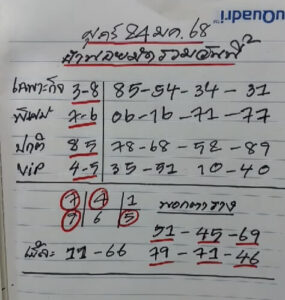 nQuadri™
ศุกร์ 24 มค. 68
ฮานอยมัดรวมวันนี้
เฉพาะกิจ 3-8 85-54-34-31
พิเศษ 7-6 06-16-71-77
ปกติ 85 78-68-58-89
VIP 4-5 35-51 10-40
7 4 1 พอกตาราง
5 6 5 51-45-69
เบิ้ล 11-66 79-71-46